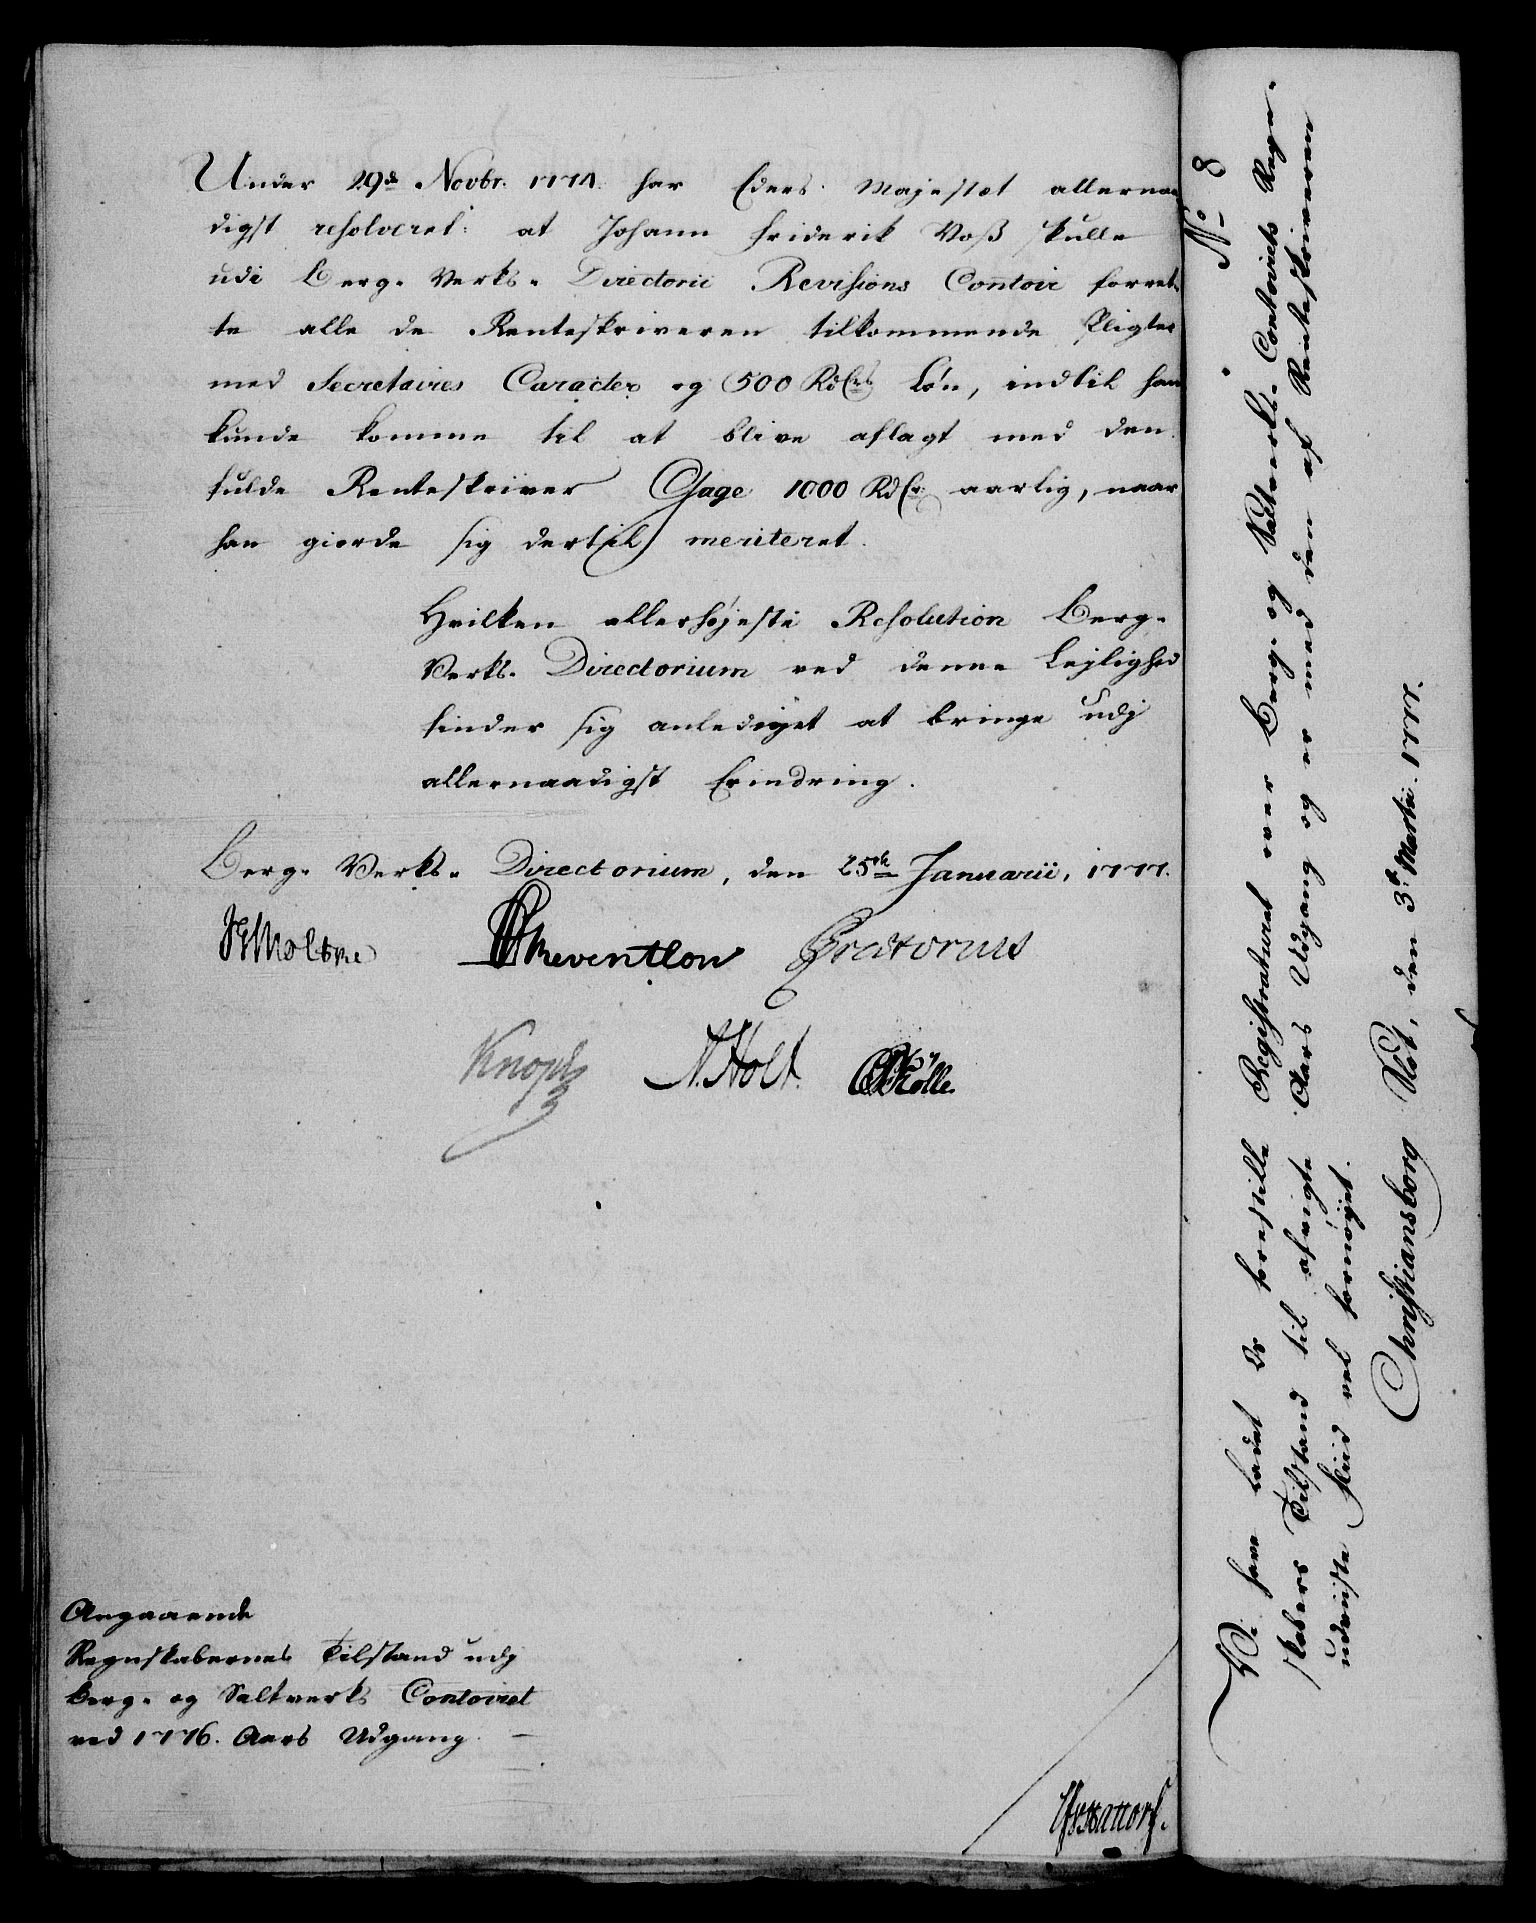 Under 29de Novbr. 1774 har Eders Majestæt allernaa
digst resolveret: at Johann Friderik Voß skulle
udi Berg-Verks-Directorii Revisions Contoir forret-
te alle de Renteskriveren tilkommende Pligter
med Secretaires Caracter og 500 Rdlrs Løn, indtil han
kunde komme til at blive aflagt med den
fulde Renteskriver Gage 1000 Rdlr. aarlig, naar
han giorde sig dertil meriteret.
Hvilken allerhøjeste Resolution Berg-
Verks-Directorium ved denne Lejlighed
finder sig anlediget at bringe udj
allernaadigst Erindring.
Berg-Verks-Directorium, den 25de Januarii, 1777.
Moltke Reventlow Prætorius
Knoph N. Holt Rølle.
Angaaende
Regnskabernes Tilstand udj
Berg- og Saltverks Contoiret
ved 1776. Aars Udgang. –
No 8
Vi have ladet Os forestille Registraturet over Berg- og Saltverks-Contoirets Regn-
skabers Tilstand til afvigte Aars Udgang og er med den af Renteskriveren
udviiste Fliid vel fornøyet.
Christiansborg Slot, den 3d Martii. 1777.